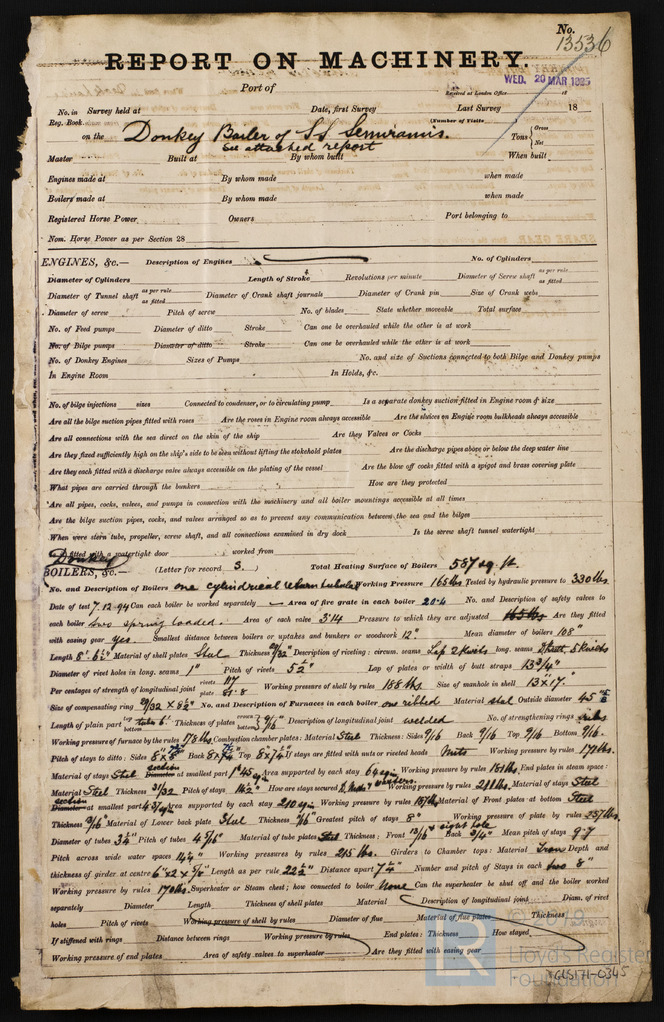 No.
13536
REPORT ON MACHINERY.
Port of
Received at London Office
WED. 20 MAR 1895
18
No. in Survey held at Date, first Survey Last Survey 18
Reg. Book. (Number of Visits
on the Donkey Boiler of SS Semiramis. Tons { Gross Net
See attached report
Master Built at By whom built When built
Engines made at By whom made when made
Boilers made at By whom made when made
Registered Horse Power Owners Port belonging to
Nom. Horse Power as per Section 28
ENGINES, &c.— Description of Engines No. of Cylinders
Diameter of Cylinders Length of Stroke Revolutions per minute Diameter of Screw shaft as per rule as fitted
Diameter of Tunnel shaft as per rule as fitted Diameter of Crank shaft journals Diameter of Crank pin Size of Crank webs
Diameter of screw Pitch of screw No. of blades State whether moveable Total surface
No. of Feed pumps Diameter of ditto Stroke Can one be overhauled while the other is at work
No. of Bilge pumps Diameter of ditto Stroke Can one be overhauled while the other is at work
No. of Donkey Engines Sizes of Pumps No. and size of Suctions connected to both Bilge and Donkey pumps
In Engine Room In Holds, &c.
No. of bilge injections sizes Connected to condenser, or to circulating pump Is a separate donkey suction fitted in Engine room & size
Are all the bilge suction pipes fitted with roses Are the roses in Engine room always accessible Are the sluices on Engine room bulkheads always accessible
Are all connections with the sea direct on the skin of the ship Are they Valves or Cocks
Are they fixed sufficiently high on the ship's side to be seen without lifting the stokehold plates Are the discharge pipes above or below the deep water line
Are they each fitted with a discharge valve always accessible on the plating of the vessel Are the blow off cocks fitted with a spigot and brass covering plate
What pipes are carried through the bunkers How are they protected
Are all pipes, cocks, valves, and pumps in connection with the machinery and all boiler mountings accessible at all times
Are the bilge suction pipes, cocks, and valves arranged so as to prevent any communication between the sea and the bilges
When were stern tube, propeller, screw shaft, and all connections examined in dry dock Is the screw shaft tunnel watertight
fitted with a watertight door worked from
Donkey
BOILERS, &c.— (Letter for record S.) Total Heating Surface of Boilers 587 sq. ft.
No. and Description of Boilers one cylindrical return tubular Working Pressure 165 lbs Tested by hydraulic pressure to 330 lbs.
Date of test 7.12.94 Can each boiler be worked separately — Area of fire grate in each boiler 20.4 No. and Description of safety valves to
each boiler two spring loaded. Area of each valve 3.14 Pressure to which they are adjusted 165 lbs Are they fitted
with easing gear yes. Smallest distance between boilers or uptakes and bunkers or woodwork 12" Mean diameter of boilers 108"
Length 8'. 6½" Material of shell plates Steel Thickness 29/32" Description of riveting: circum. seams Lap 2 Rivets long. seams D butt 5 Rivets
Diameter of rivet holes in long. seams 1" Pitch of rivets 5½" Lap of plates or width of butt straps 13¾"
Per centages of strength of longitudinal joint rivets 117 plate 81.8 Working pressure of shell by rules 188 lbs Size of manhole in shell 13" x 17".
Size of compensating ring 29/32 x 8½" No. and Description of Furnaces in each boiler one ribbed Material steel Outside diameter 45"
Length of plain part top bottom tube 6" Thickness of plates crown bottom 9/16" Description of longitudinal joint welded No. of strengthening rings ribs
Working pressure of furnace by the rules 178 lbs Combustion chamber plates: Material Steel Thickness: Sides 9/16 Back 9/16 Top 9/16 Bottom 9/16.
Pitch of stays to ditto: Sides 8" x Back 8 x Top 8 x 7¼" If stays are fitted with nuts or riveted heads Nuts Working pressure by rules 171 lbs
Material of stays Steel section Diameter at smallest part 1".45 sq in Area supported by each stay 64 sq in. Working pressure by rules 181 lbs End plates in steam space:
Material Steel Thickness 29/32 Pitch of stays 14½" How are stays secured D. Nuts & washers. Working pressure by rules 211 lbs. Material of stays Steel
section Diameter at smallest part Area supported by each stay 210 sq in Working pressure by rules Material of Front plates at bottom Steel
Thickness Material of Lower back plate Steel Thickness Greatest pitch of stays 8" Working pressure of plate by rules
Diameter of tubes 3¼" Pitch of tubes Material of tube plates Steel Thickness: Front 13/16" Back ¾" Mean pitch of stays 9.7
Pitch across wide water spaces 14¼" Working pressures by rules 215 lbs. Girders to Chamber tops: Material Iron Depth and
thickness of girder at centre 6" x 2 x ⅝" Length as per rule 22½" Distance apart 7¼" Number and pitch of Stays in each two 8"
Working pressure by rules 170 lbs. Superheater or Steam chest; how connected to boiler None Can the superheater be shut off and the boiler worked
separately Diameter Length Thickness of shell plates Material Description of longitudinal joint Diam. of rivet
holes Pitch of rivets Working pressure of shell by rules Diameter of flue Material of flue plates Thickness
If stiffened with rings Distance between rings Working pressure by rules End plates: Thickness How stayed
Working pressure of end plates Area of safety valves to superheater Are they fitted with easing gear
© 2019
LR
Lloyd's Register
Foundation